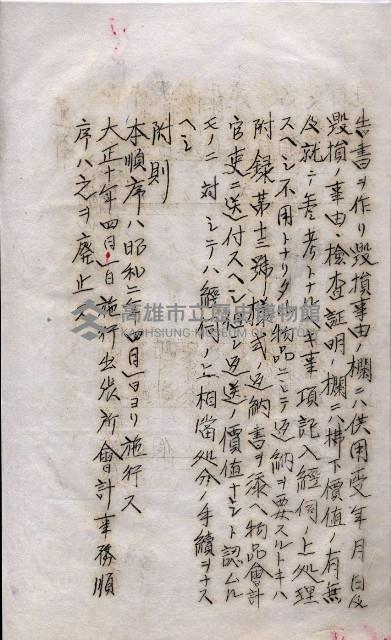 告書ヲ作リ毀損事由ノ欄ニハ供用受年月日及
毀損ノ事由、檢査証明ノ欄ニハ拂下價値ノ有無
及就テ参考トナルヘキ事項記入経伺ノ上処理
スヘシ不用トナリタル物品ニシテ返納ヲ要スルトキハ
附録第十三號様式ノ返納書ヲ添ヘ物品會計
官吏ニ送付スヘシ但返送ノ價値ナシト認ムル
モノニ対シテハ経伺ノ上相當処分ノ手續ヲナス
ヘシ
附則
本順序ハ昭和二年四月一日ヨリ施行ス
大正十年四月一日施行出張所會計事務順
序ハ之ヲ廃止ス
高雄市立歷史博物館
KAOHSIUNG MUSEUM OF HISTORY